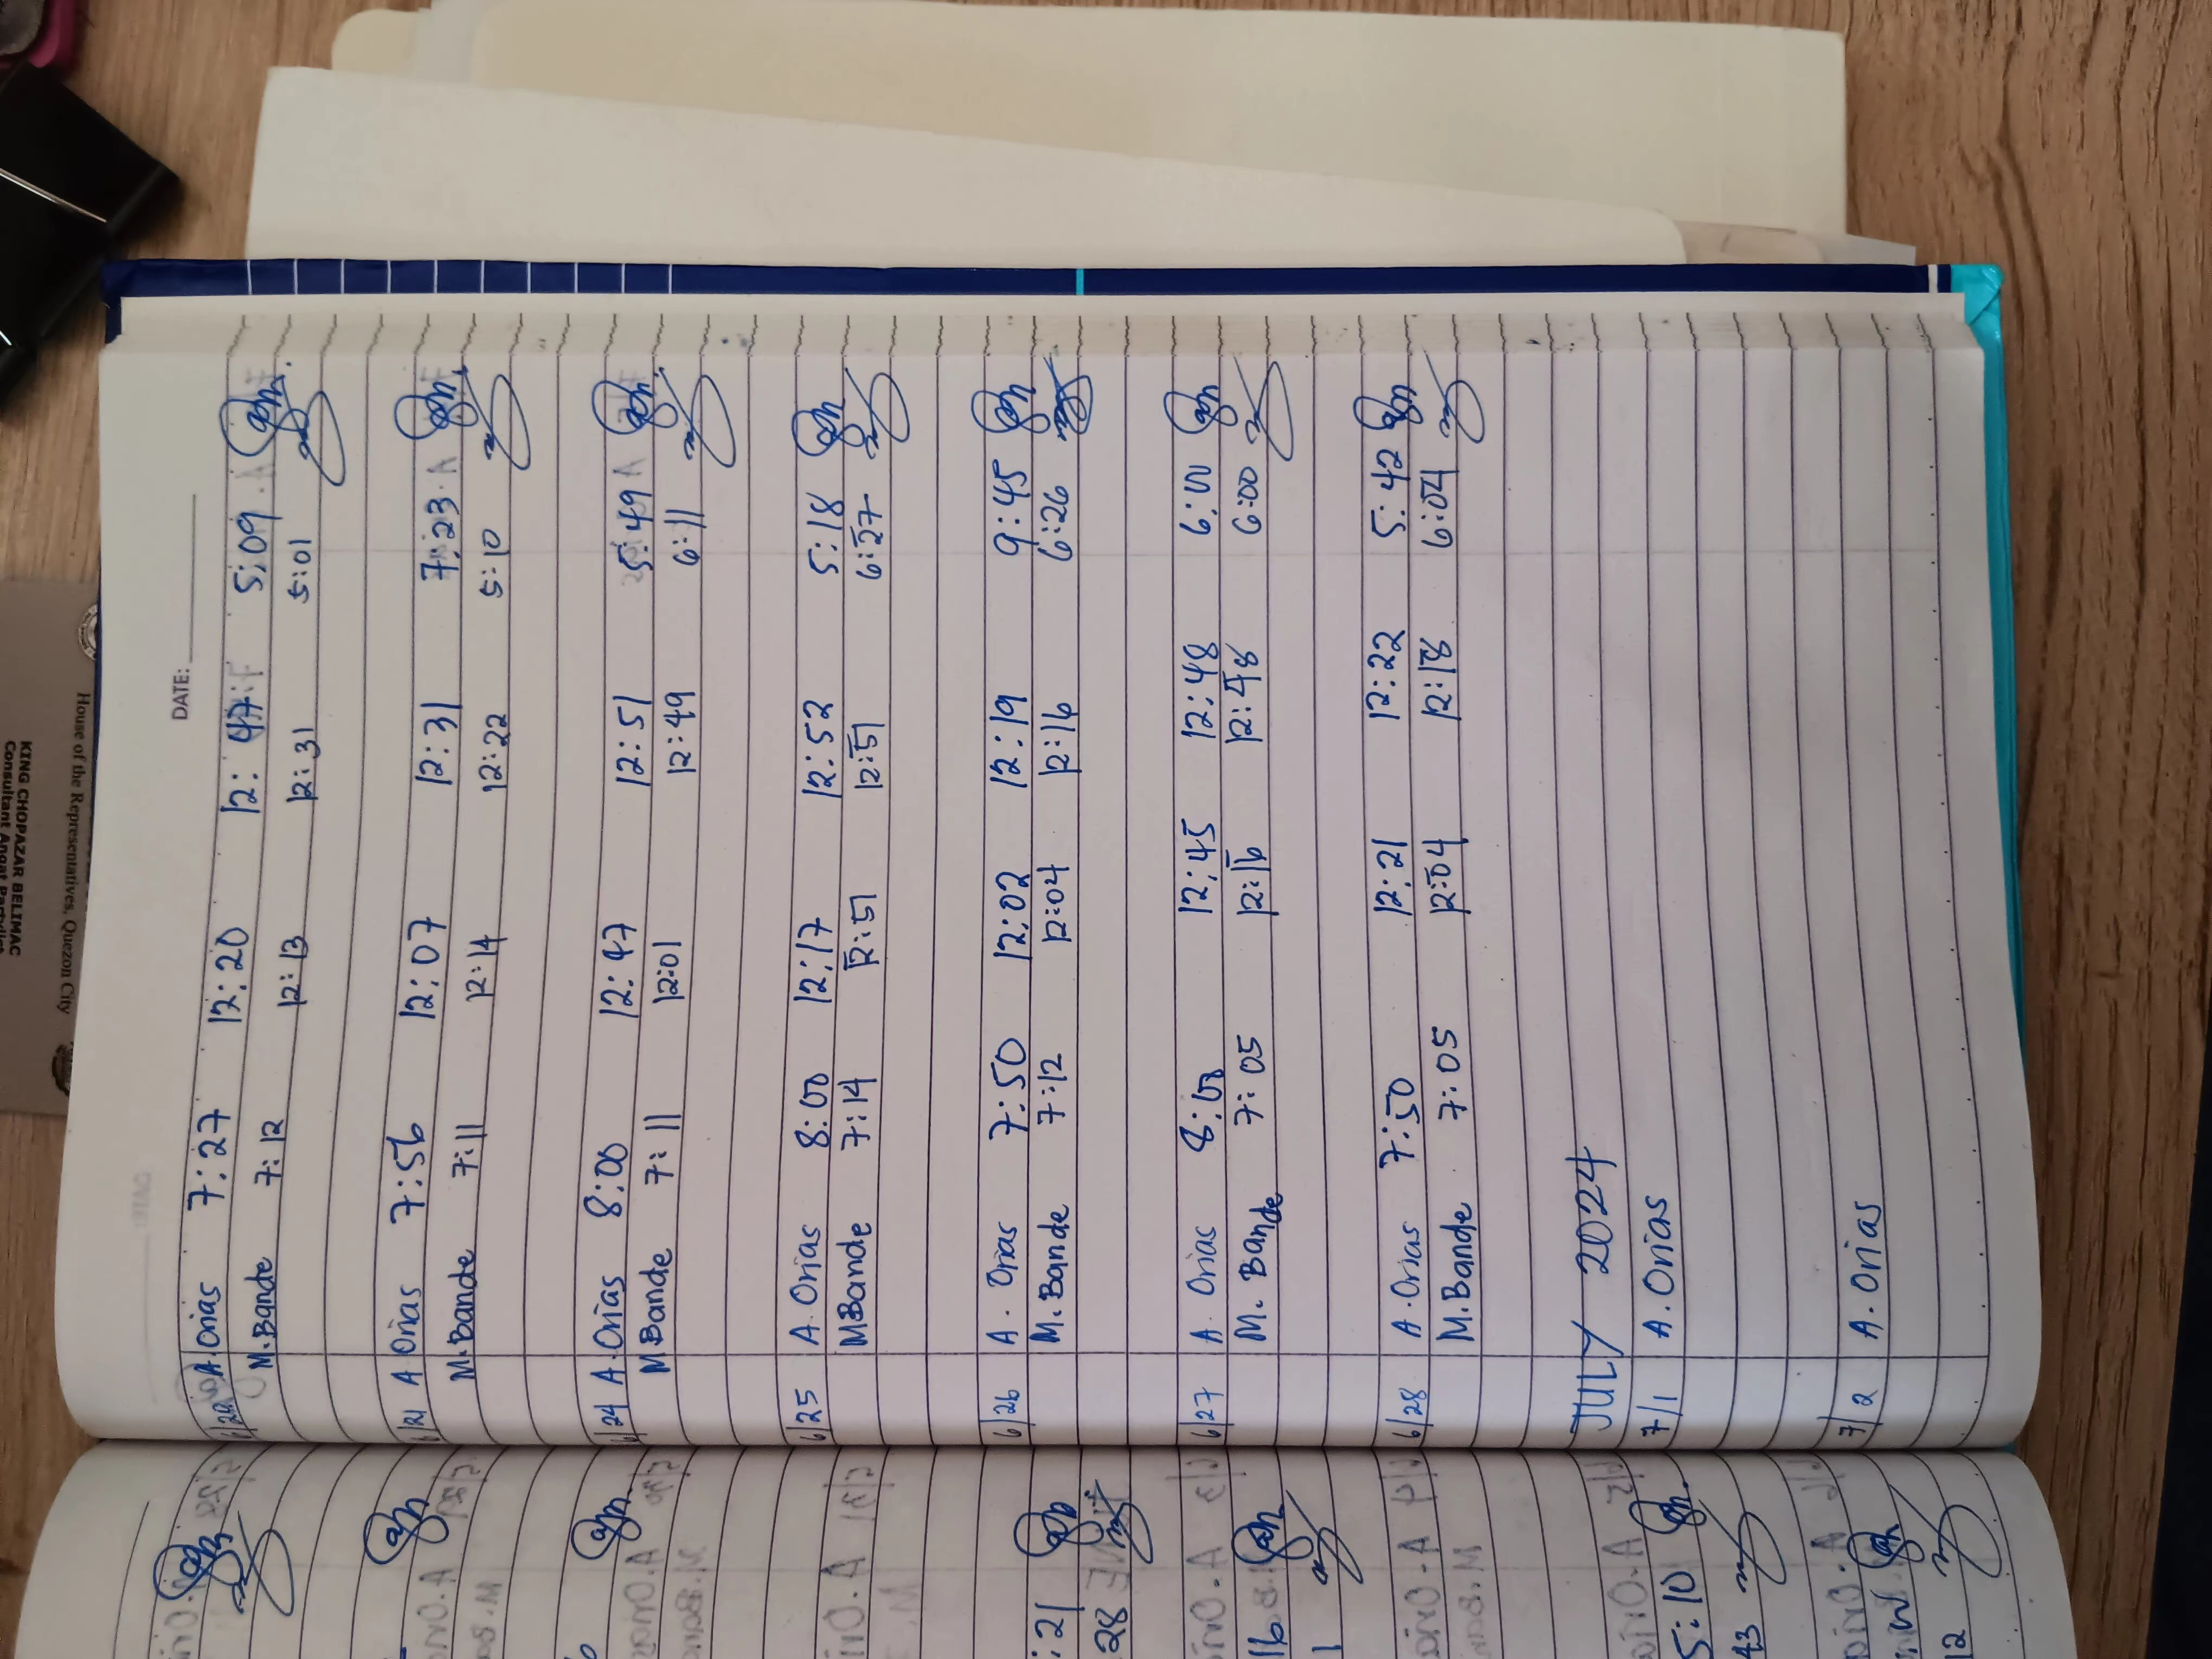 DATE:
6/20 A. Orias 7:27 12:20 12:47 5:09
M. Bande 7:12 12:13 12:31 5:01
6/21 A Orias 7:56 12:07 12:31 7:23
M. Bande 7:11 12:14 12:22 5:10
6/24 A. Orias 8:00 12:47 12:51 5:49
M Bande 7:11 12:01 12:49 6:11
6/25 A. Orias 8:00 12:17 12:52 5:18
M Bande 7:14 12:51 12:51 6:27
6/26 A. Orias 7:50 12:02 12:19 9:45
M. Bande 7:12 12:04 12:16 6:26
6/27 A. Orias 8:00 12:45 12:48 6:00
M. Bande 7:05 12:16 12:48 6:00
6/28 A. Orias 7:50 12:21 12:22 5:42
M. Bande 7:05 12:04 12:18 6:04
JULY 2024
7/1 A. Orias
7/2 A. Orias
:21
28
16
1
5:10
43
12
House of the Representatives, Quezon City
KING CHOPAZAR BELIMAC
Consultant Angat Partylist